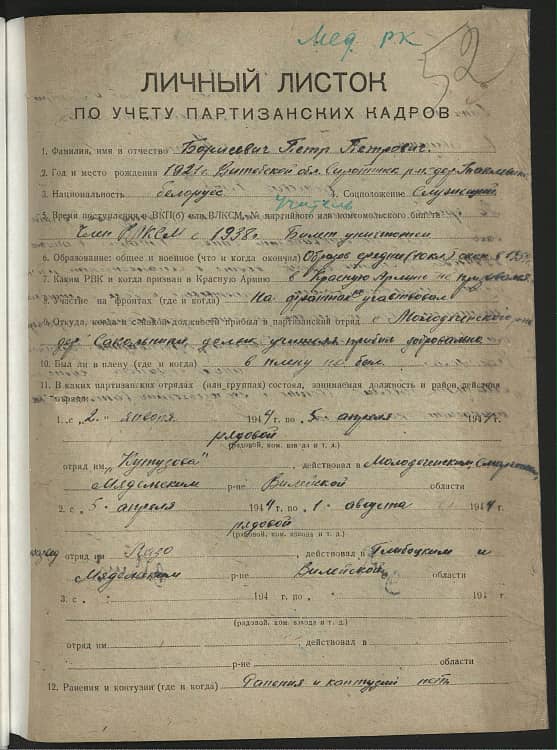 Мед. рк
52
ЛИЧНЫЙ ЛИСТОК
ПО УЧЕТУ ПАРТИЗАНСКИХ КАДРОВ
1. Фамилия, имя и отчество Борисевич Петр Петрович.
2. Год и место рождения 1921 г. Витебской обл. р-н дер.
3. Национальность белорусс 4. Соцположение Служащий
учитель
5. Время поступления в ВКП(б) или ВЛКСМ, № партийного или комсомольского билета
Член ВЛКСМ с 1938 г. Билет уничтожен
6. Образование: общее и военное (что и когда окончил) Образов. среднее
7. Каким РВК и когда призван в Красную Армию в Красную Армию не призывался
8. Участие на фронтах (где и когда) На фронтах не участвовал
9. Откуда, когда и с какой должности прибыл в партизанский отряд с Молодеченского
дер. Сакольники, учитель прибыл добровольно
10. Был ли в плену (где и когда) в плену не был.
11. В каких партизанских отрядах (или группах) состоял, занимаемая должность и район действия
отряда:
1. с „2„ января 1944 г. по 5 апреля 1944 г.
рядовой
(рядовой, ком. взвода и т. д.)
отряд им „Кутузова" действовал в Молодеченским,
Мядельским р-не Вилейской области
2. с „5„ апреля 1944 г. по „1„ августа 1944 г.
рядовой
(рядовой, ком. взвода и т. д.)
отряд им Лазо действовал в Глубоцким и
Мядельским р-не Вилейской области
3. с „ 194 г. по „ 194 г.
(рядовой, ком. взвода и т. д.)
отряд им действовал в
р-не области
12. Ранения и контузии (где и когда) Ранения и контузий нет